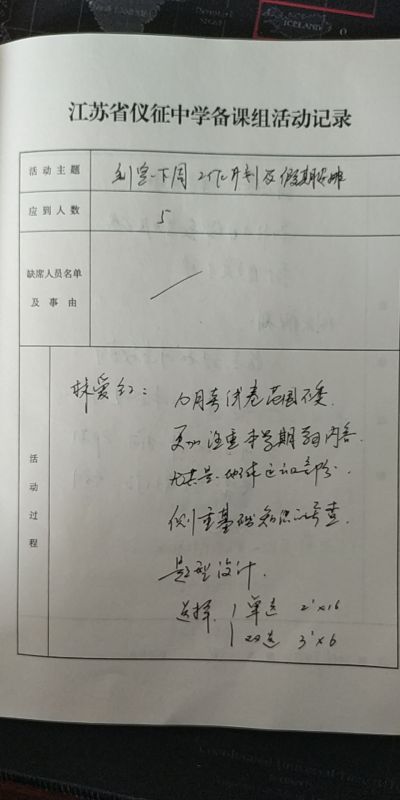 江苏省仪征中学备课组活动记录
活动主题 制定下周工作计划及假期安排
应到人数 5
缺席人员名单
及事由
活动过程
林爱红：10月考试卷范围不变
更加注重本学期学习内容
尤其是地球运动部分
侧重基础知识考查
题型设计
选择 单选 2'×16
双选 3'×6